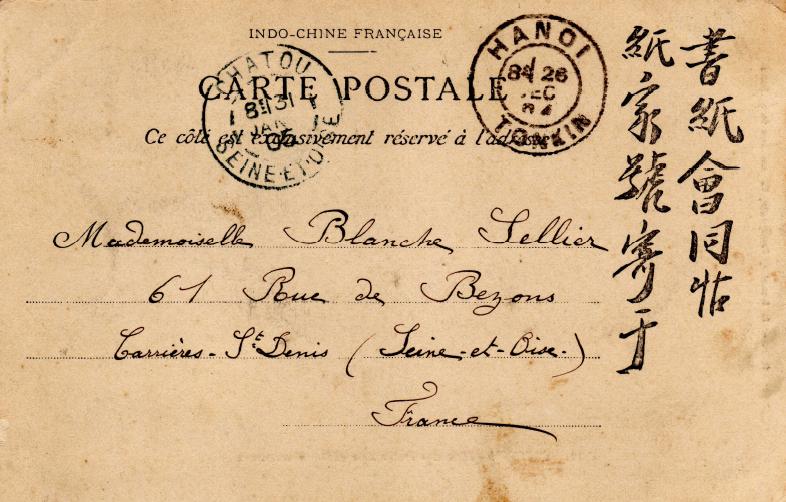 INDO-CHINE FRANÇAISE
CARTE POSTALE
Ce côté est exclusivement réservé à l'adresse
HANOI
8E 26
DEC
04
TONKIN
CHATOU
8E 31
JAN
05
SEINE-ET-OISE
Mademoiselle Blanche Sellier
61 Rue de Bezons
Carrières-St Denis (Seine-et-Oise-)
France
書紙會同帖
紙家號寄于